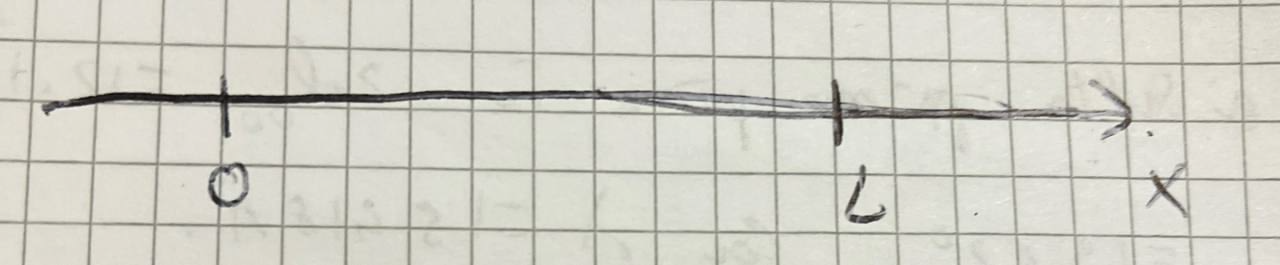 0 L x